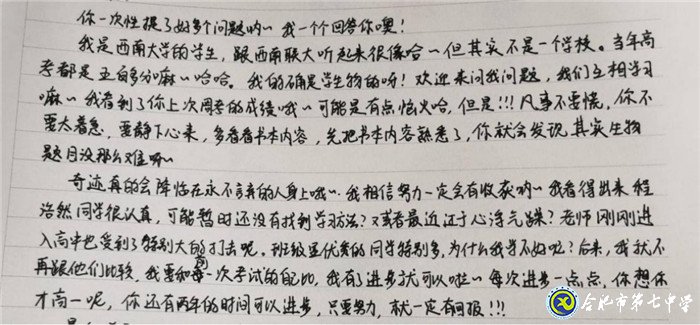 你一次性提了好多个问题哟~ 我一个个回答你噢！
我是西南大学的学生，跟西南联大听起来很像哈~但其实不是一个学校。当年高
考都是五百多分嘛~哈哈。我的确是学生物的呀！欢迎来问我问题，我们互相学习
嘛~我看到了你上次周考的成绩哦~可能是有点恼火哈，但是!!!凡事不要慌，你不
要太着急，要静下心来，多看看书本内容，先把书本内容熟悉了，你就会发现其实生物
题目没那么难啊~
奇迹真的会降临在永不言弃的人身上哦~我相信努力一定会有收获哟~我看得出来 程
浩然同学很认真，可能暂时还没有找到学习方法？又或者最近过于心浮气躁？老师刚刚进
入高中也受到了特别大的打击呢。班级里优秀的同学特别多，为什么我学不好呢？后来，我就不
再跟他们比较，我要和每一次考试的自己比，我有进步就可以啦~每次进步一点点，你想你
才高一呢，你还有两年的时间可以进步，只要努力，就一定有回报!!!
合肥市第七中学